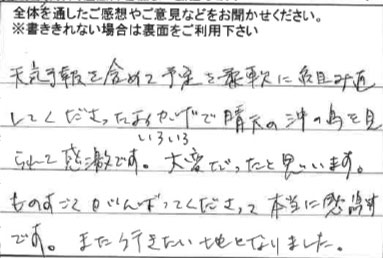 全体を通したご感想やご意見などをお聞かせください。
※書ききれない場合は裏面をご利用下さい
天気予報を含めて予定を柔軟に組み直
してくださったおかげで晴天の沖の島を見
いろいろ
られて感激です。大変だったと思います。
ものすごくがんばってくださって本当に感謝
です。また行きたい地となりました。